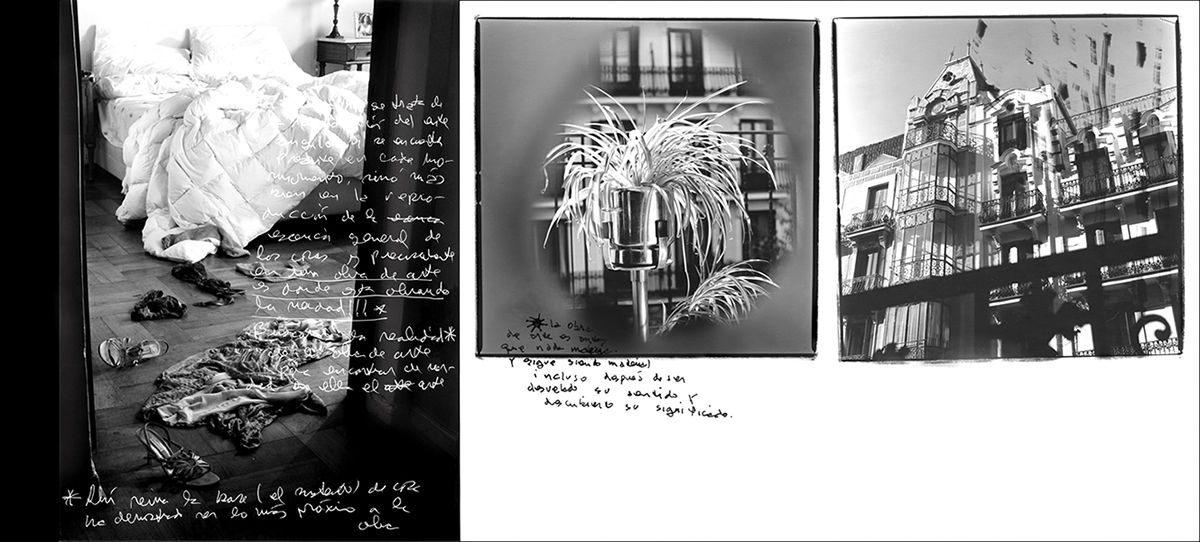 se trata de
del arte
se encuentra
presente en cada mo-
momento, sinó más
bien en la repro-
ducción de la
esencia general de
las cosas y precisamente
en una obra de arte
es donde está obrando
la verdad!!! *
la realidad *
obra de arte
para encontrar de ver-
dad en ella el arte
* Allí reina la base (el sustrato) de cosa
ha demostrado ser lo más próximo a la
obra
* la obra
de arte es
que nada
y sigue siendo material
incluso después de ser
desvelado su sentido y
descubierto su significado.